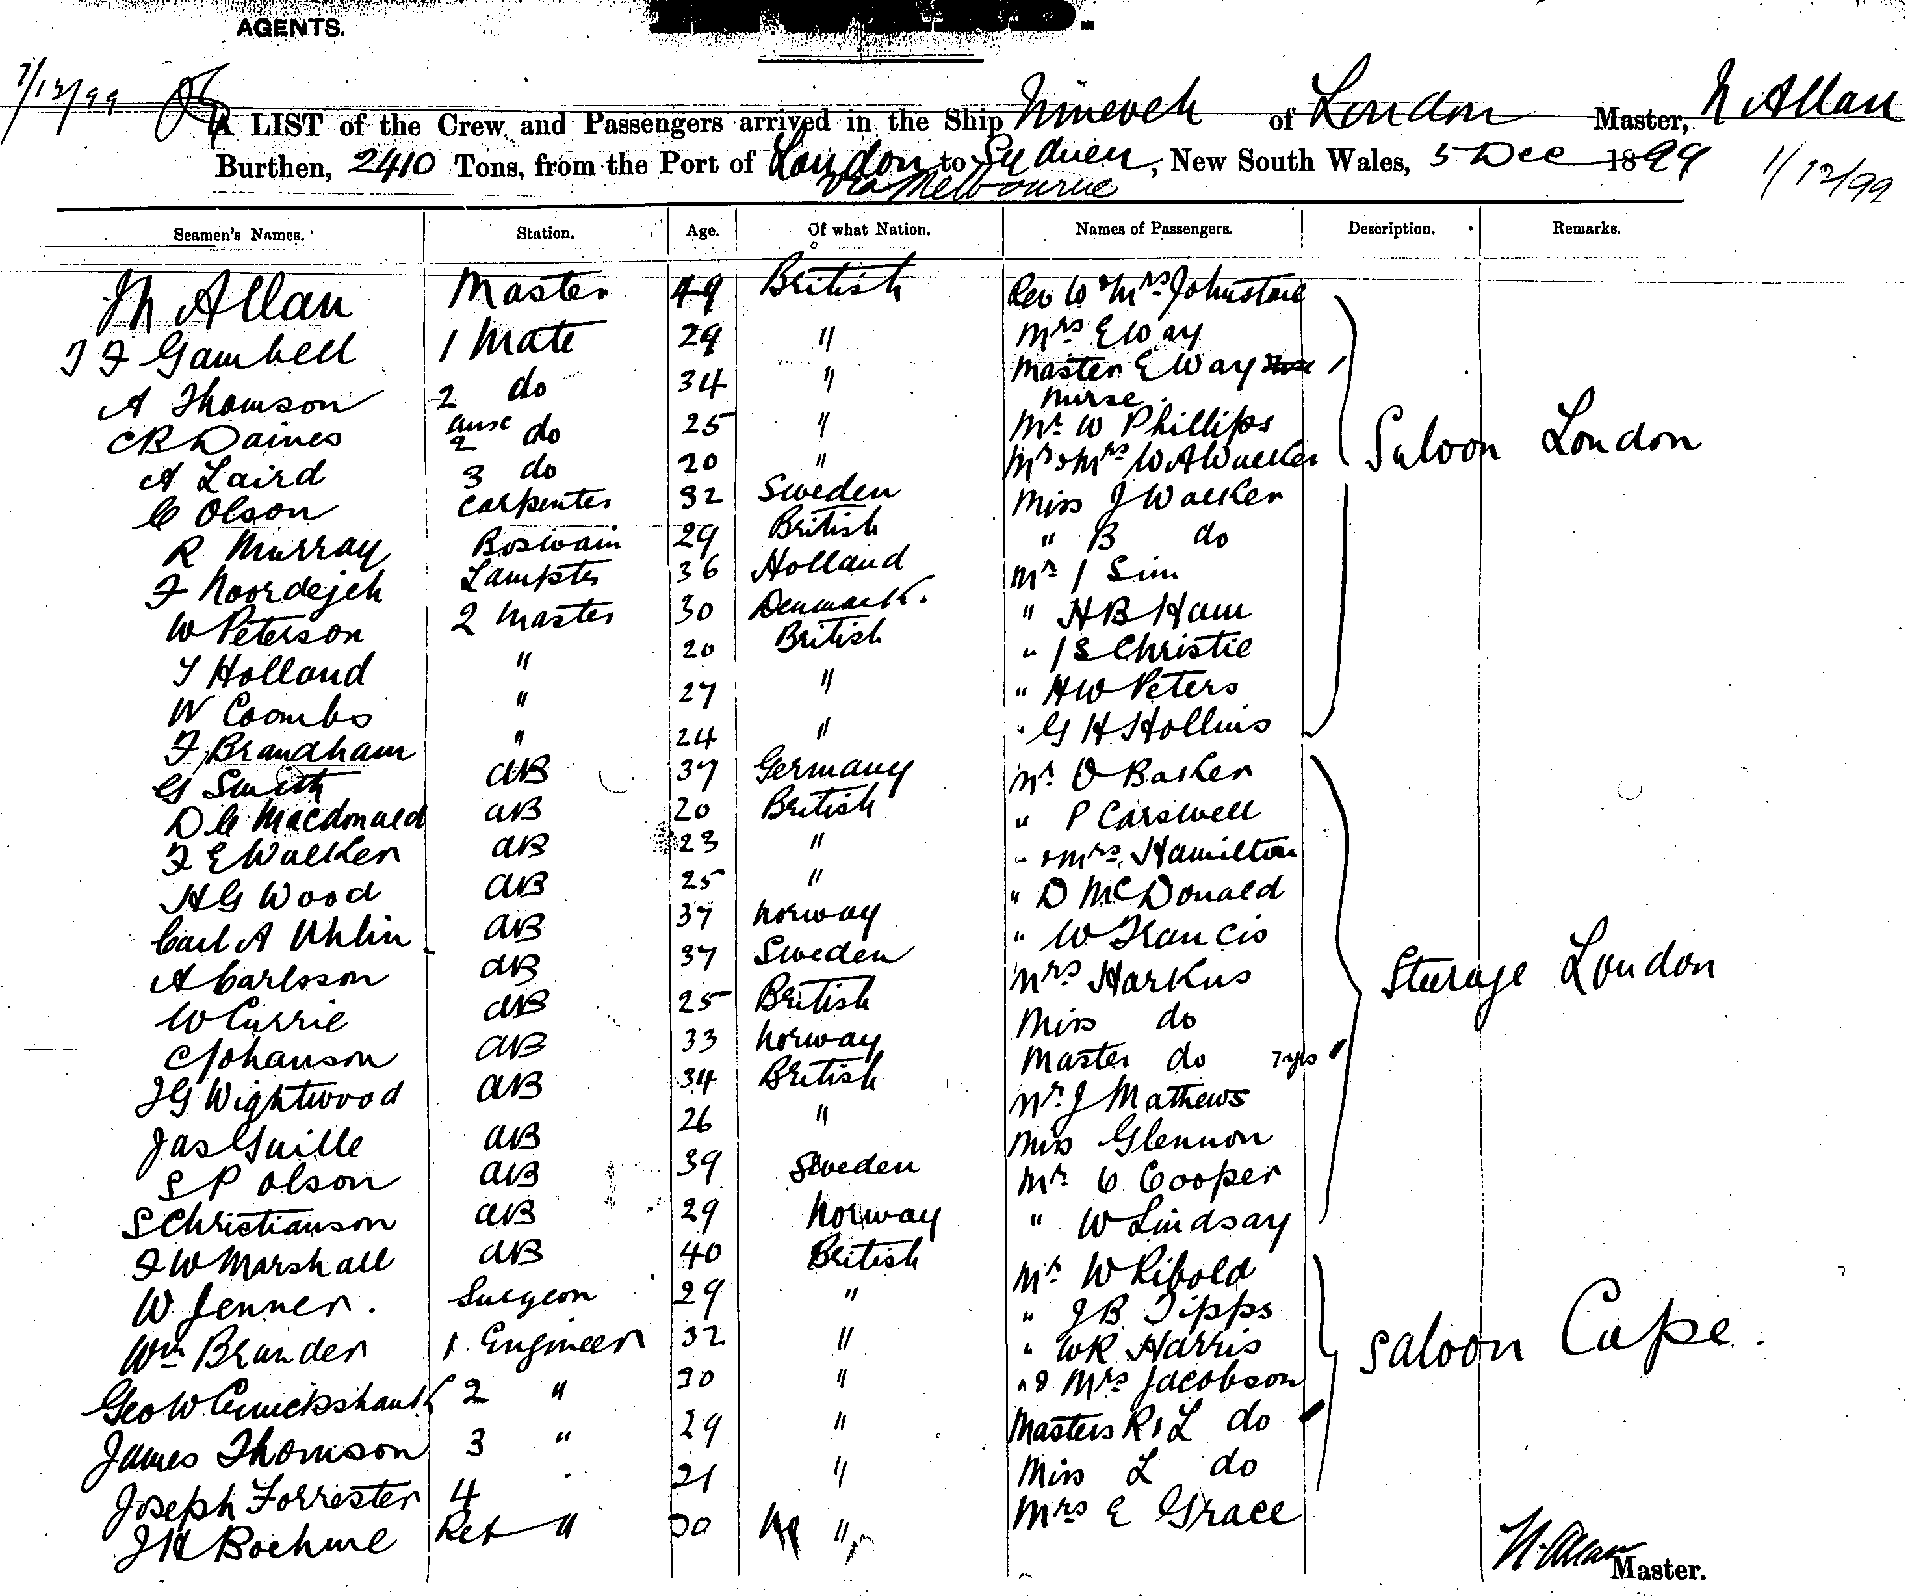 AGENTS.
7/12/99
A LIST of the Crew and Passengers arrived in the Ship Nineveh of London Master, N Allan
Burthen, 2410 Tons, from the Port of London to Sydney, New South Wales, 5 Dec 1899 1/12/99
via Melbourne
Seamen's Names. Station. Age. Of what Nation. Names of Passengers. Description. Remarks.
Allan Master 49 British Rev W & Mrs Johnstone
F Gambell 1 Mate 29 " Mrs E Way
A Thomson 2 do 34 " Master E Way
Nurse
C R Daines 2 do 25 " Mr W Phillips
A Laird 3 do 20 " Mr & Mrs W A Walker Saloon London
C Olson Carpenter 32 Sweden Miss J Walker
R Murray Boswain 29 British " B do
F Noordejeh Lampstr 36 Holland Mr J Sim
W Peterson 2 Master 30 Denmark. " H B Ham
T Holland " 20 British " J S Christie
W Coombs " 27 " " H W Peters
F Brandham " 24 " " G H Hollins
G Smith AB 37 Germany Mr O Basken
D C Macdonald AB 20 British " P Carswell
F E Walker AB 23 " " & Mrs Hamilton
H G Wood AB 25 " " D McDonald
Carl A Uhlin AB 37 Norway " W Francis
A Carlsson AB 37 Sweden Mrs Harkus Sturage London
W Currie AB 25 British Miss do
C Johanson AB 33 Norway Master do 7 yrs
J G Wightwood AB 34 British Mr J Mathews
Jas Guille AB 26 " Miss Glennon
S P Olson AB 39 Sweden Mr C Cooper
S Christianson AB 29 Norway " W Lindsay
F W Marshall AB 40 British Mr W Ribold
W Jenner. Surgeon 29 " " J B Tipps
Wm Brander 1. Engineer 32 " " W R Harris Saloon Cape.
Geo W Cruickshank 2 " 30 " " & Mrs Jacobson
James Thomson 3 " 29 " Masters R & L do
Joseph Forrester 4 21 " Miss L do
J H Boehme Ref " 30 " Mrs E Grace
N. Allan Master.